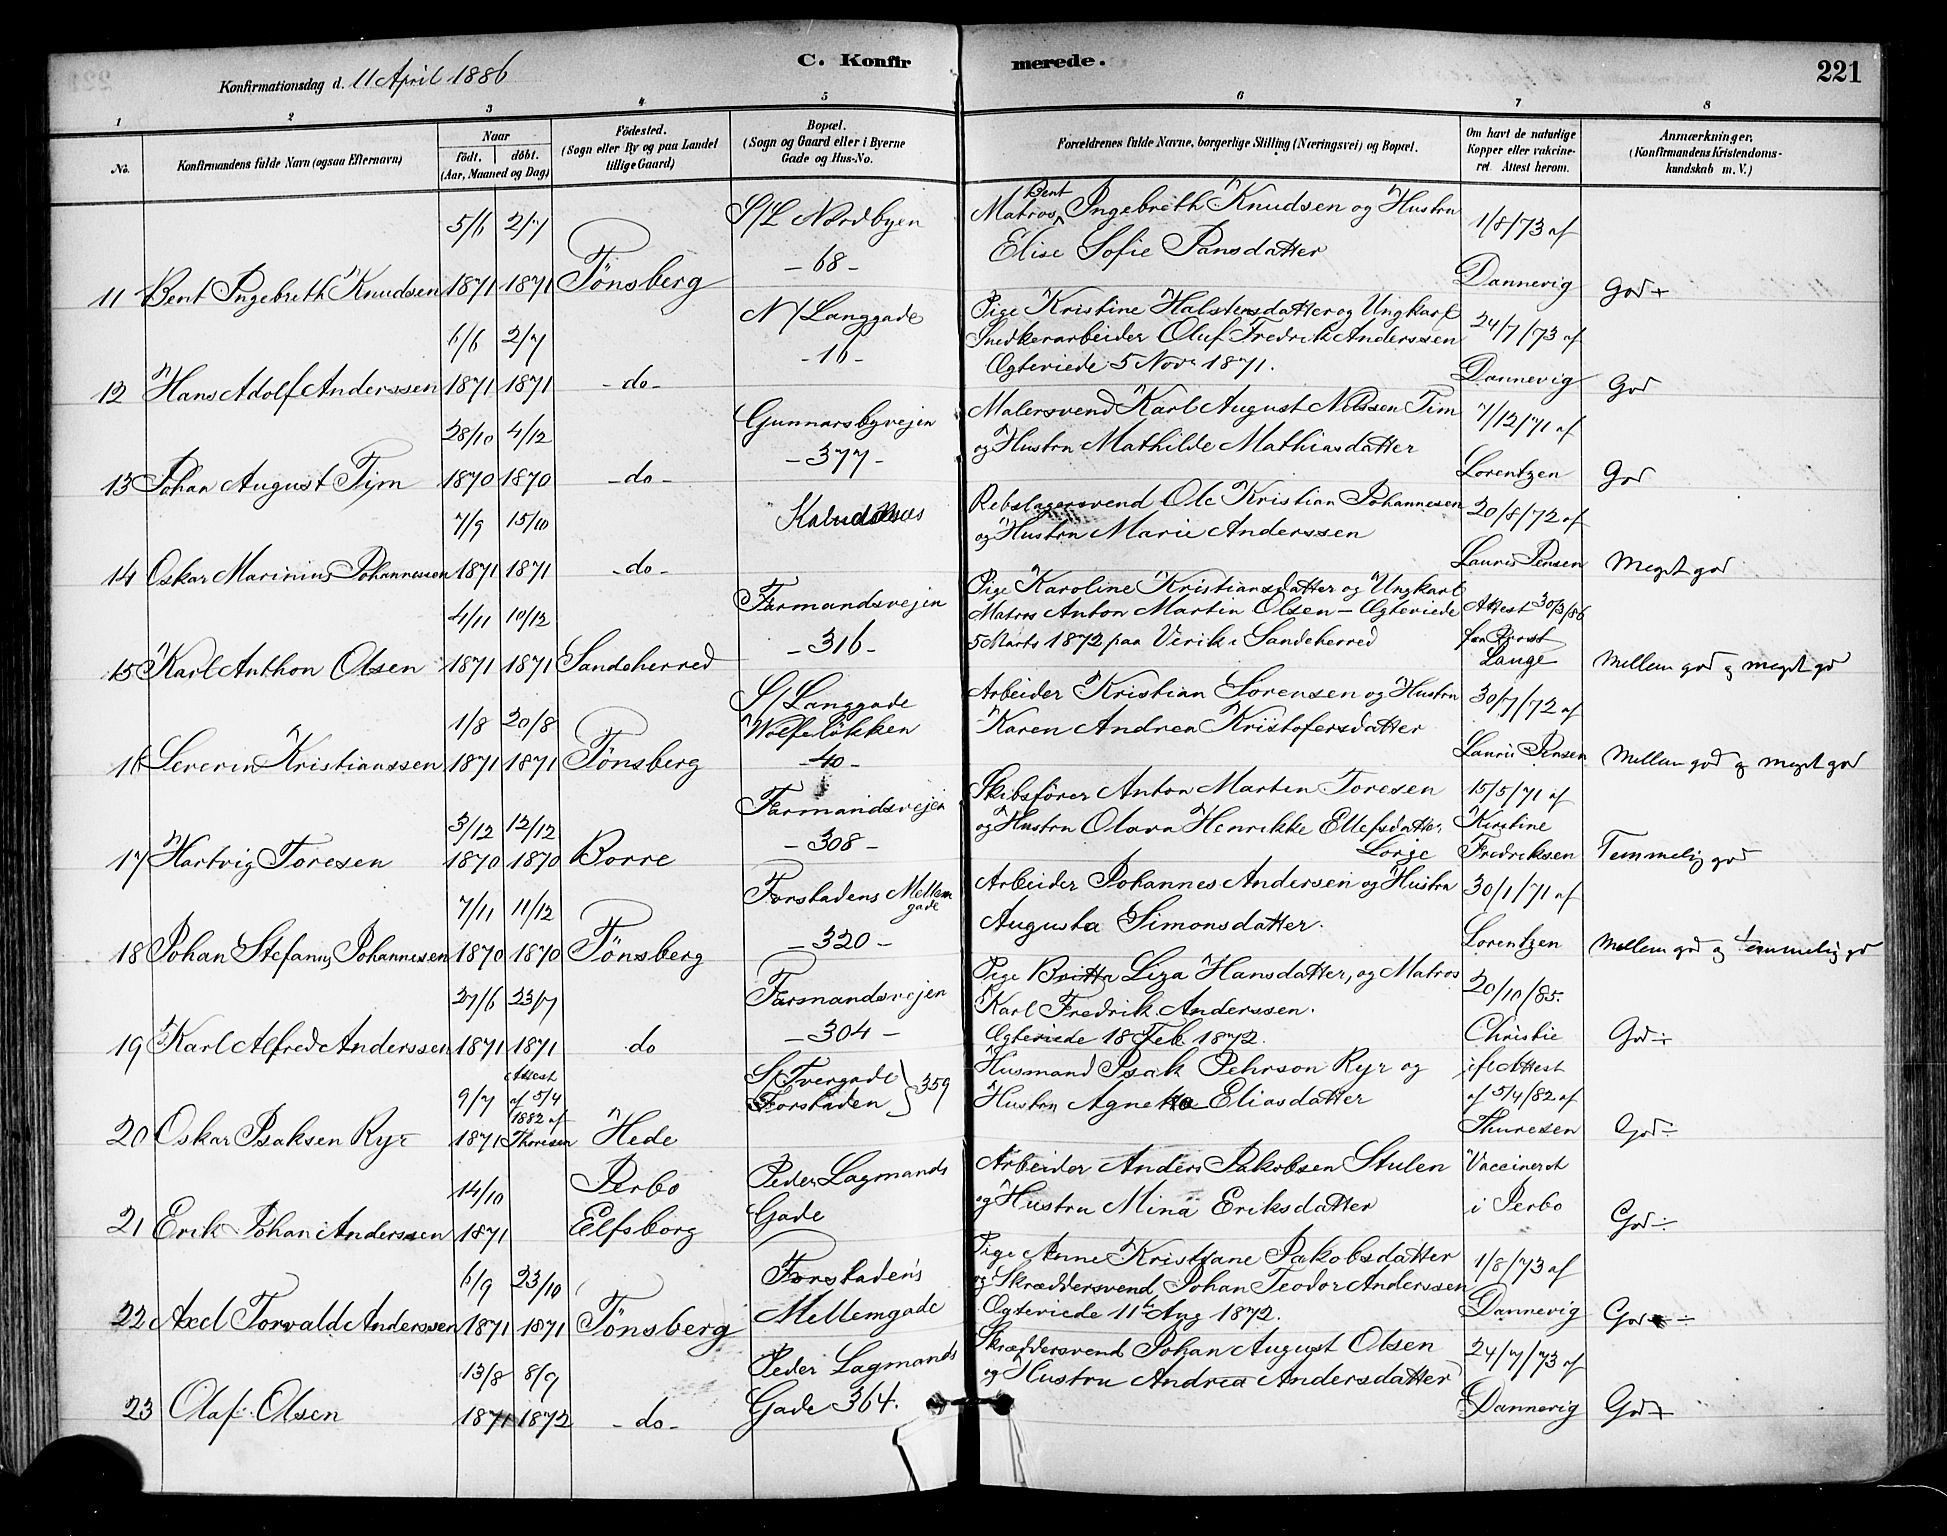 Konfirmationsdag d. 11 April 1886
C. Konfirmerede.
221
1 2 3 4 5 6 7 8
No.
Konfirmandens fulde Navn (ogsaa Efternavn)
Naar
født. døbt.
(Aar, Maaned og Dag)
Fødested.
(Sogn eller By og paa Landet
tillige Gaard)
Bopæl.
(Sogn og Gaard eller i Byerne
Gade og Hus-No.
Forældrenes fulde Navne, borgerlige Stilling (Næringsvei) og Bopæl.
Om havt de naturlige
Kopper eller vakcine-
ret Attest herom.
Anmærkninger,
(Konfirmandens Kristendoms-
kundskab m. V.)
5/6 2/7 S/L Nordbyen Matros Bent Ingebreth Knudsen og Hustru 1/8/73 af
- 68 - Elise Sofie Jansdatter
11 Bent Ingebreth Knudsen 1871 1871 Tønsberg Dannevig God +
6/6 2/7 N/Langgade Pige Kristine Halstensdatter og Ungkarl 24/7/73 af
- 16 - Snedkerarbeider Oluf Fredrik Anderssen
Ægteviede 5 Novr 1871.
12 Hans Adolf Anderssen 1871 1871 - do - Dannevig God
28/10 4/12 Gunnarsbyvejen Malersvend Karl August Nilssen Tim 7/12/71 af
- 377 - og Hustru Mathilde Mathiasdatter
13 Johan August Tim 1870 1870 - do - Lorentzen God
7/9 15/10 Kaldnæs Rebslagersvend Ole Kristian Johannesen 20/8/72 af
og Hustru Marie Anderssen
14 Oskar Marinius Johannessen 1871 1871 - do - Lauris Jensen Meget god
4/11 10/12 Farmandsvejen Pige Karoline Kristiansdatter og Ungkarl
Matros Anton Martin Olsen - Ægteviede Attest 30/3/86
- 316 - 5 Marts 1872 paa Verik i Sandeherred fra Provst
15 Karl Anthon Olsen 1871 1871 Sandeherred Lange Mellem god og meget god
1/8 20/8 S/Langgade Arbeider Kristian Sørensen og Hustru 30/7/72 af
Wolfsløkken Karen Andrea Kristofersdatter
16 Severin Kristianssen 1871 1871 Tønsberg - 40 - Lauris Jensen Mellem god og meget god
3/12 12/12 Farmandsvejen Skibsfører Anton Martin Toresen 15/5/71 af
- 308 - og Hustru Olava Henrikke Ellefsdatter Kirstine
17 Hartvig Toresen 1870 1870 Borre Lorje Fredriksen Temmelig god
7/11 11/12 Forstadens Mellemgade Arbeider Johannes Andersen og Hustru 30/1/71 af
- 320 - Augusta Simonsdatter.
18 Johan Stefanus Johannesen 1870 1870 Tønsberg Lorentzen Mellem god og temmelig god
27/6 23/7 Farmandsvejen Pige Britta Liza Hansdatter, og Matros 20/10/85.
- 304 - Karl Fredrik Anderssen.
19 Karl Alfred Anderssen 1871 1871 do Ægteviede 18 Feb. 1872. Christie God ÷
9/7 Attest af 5/4 1882 af Thoresen S/Tvergade Forstaden } 359 Husmand Isak Pehrson Ryr og ifl Attest
Hustru Agneta Eliasdatter af 5/4/82 af
20 Oskar Isaksen Ryr 1871 Hede Thuresen God ÷
14/10 Jerbo Peder Lagmands Arbeider Anders Jakobsen Stulen Vaccineret
og Hustru Mina Eriksdatter i Jerbo
21 Erik Johan Anderssen 1871 Elfsborg Gade God ÷
6/9 23/10 Forstadens Pige Anne Kristiane Jakobsdatter 1/8/73 af
og Skræddersvend Johan Teodor Anderssen
22 Axel Torvald Anderssen 1871 1871 Tønsberg Mellemgade Ægteviede 11te Aug 1872. Dannevig God ÷
13/8 8/9 Peder Lagmands Skræddersvend Johan August Olsen 24/7/73 af
og Hustru Andrea Andersdatter
23 Olaf Olsen 1871 1872 - do - Gade 364. Dannevig God +